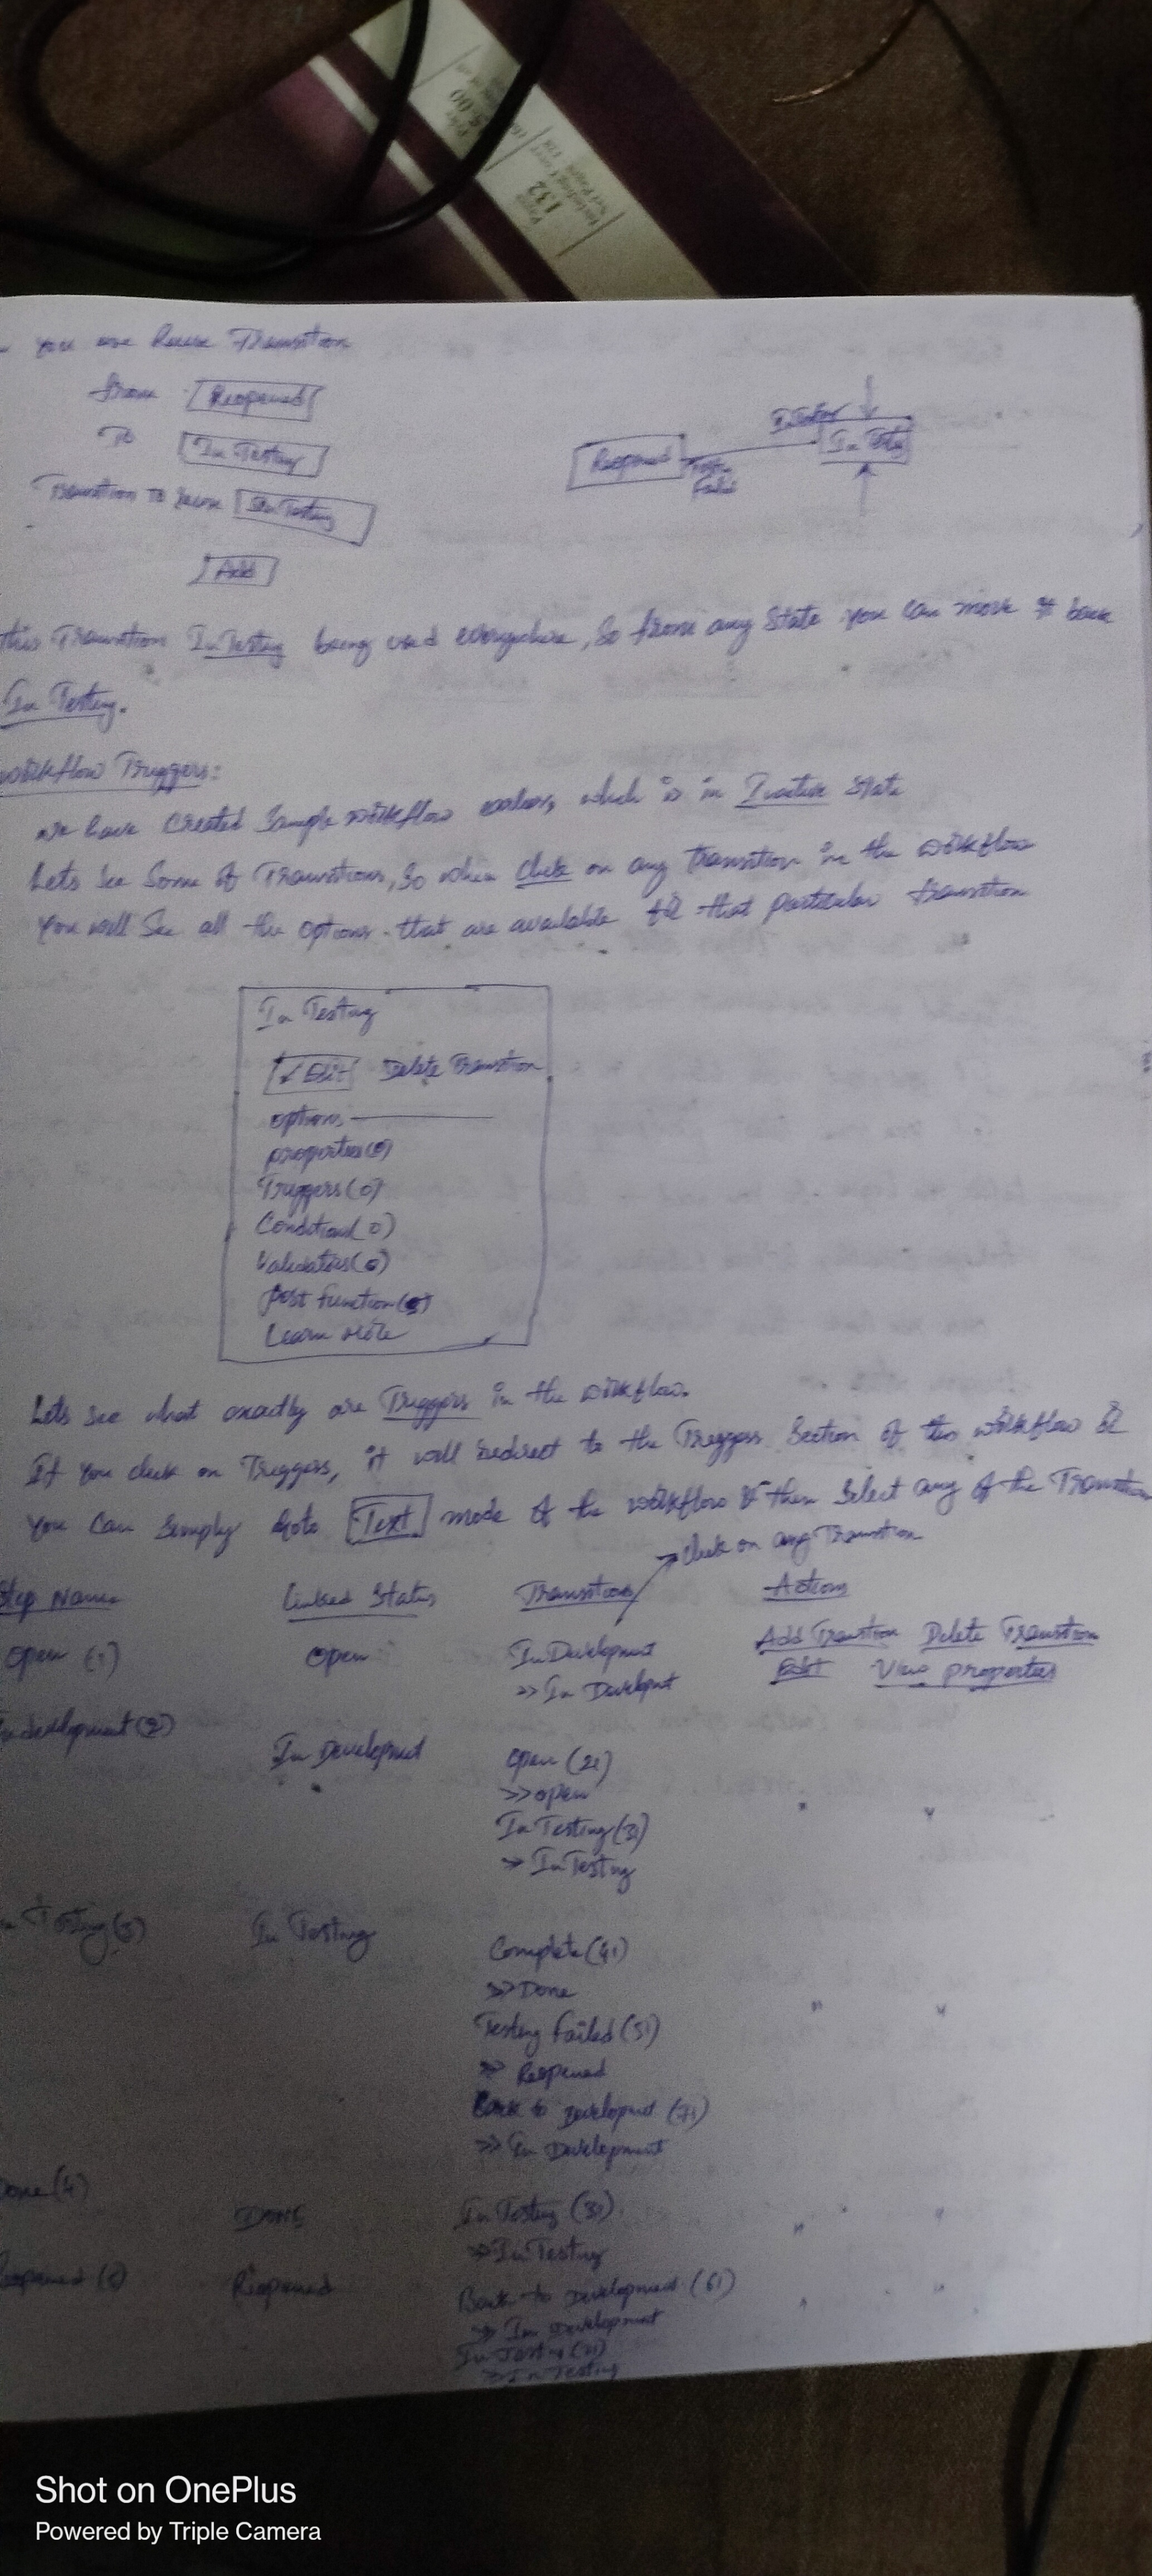 You are Reuse Transition
from [Reopened]
To [In Testing]
Transition To Reuse [In Testing]
[Add]
Reopened
Testing Failed
In Testing
this Transition In Testing being used everywhere, So from any State you can move it back
In Testing.
workflow Triggers:
we have created Sample workflow earlier, which is in Inactive State
Lets See Some of Transitions, So when click on any transition in the workflow
You will See all the options that are available for that particular transition
In Testing
Edit Delete Transition
options
properties(0)
Triggers(0)
Conditions(0)
Validators(0)
post function(5)
Learn More
Lets see what exactly are Triggers in the workflow.
If you click on Triggers, it will redirect to the Triggers Section of this workflow or
You Can Simply Goto [Text] mode of the workflow & then Select any of the Transition
click on any Transition
Step Name Linked Status Transition Actions
Open (1) Open In Development Add Transition Delete Transition
>> In Developmt Edit View properties
In development(2) In Development Open (21)
>> open
In Testing(31) " "
>> In Testing
In Testing(3) In Testing Complete(41)
>> Done
Testing failed(51) " "
>> Reopened
Back to Development (71)
>> In Development
Done(4) Done In Testing (31) " "
>> In Testing
Reopened Back to Development (61) " "
>> In Development
In Testing(31)
>> In Testing
132
Shot on OnePlus
Powered by Triple Camera